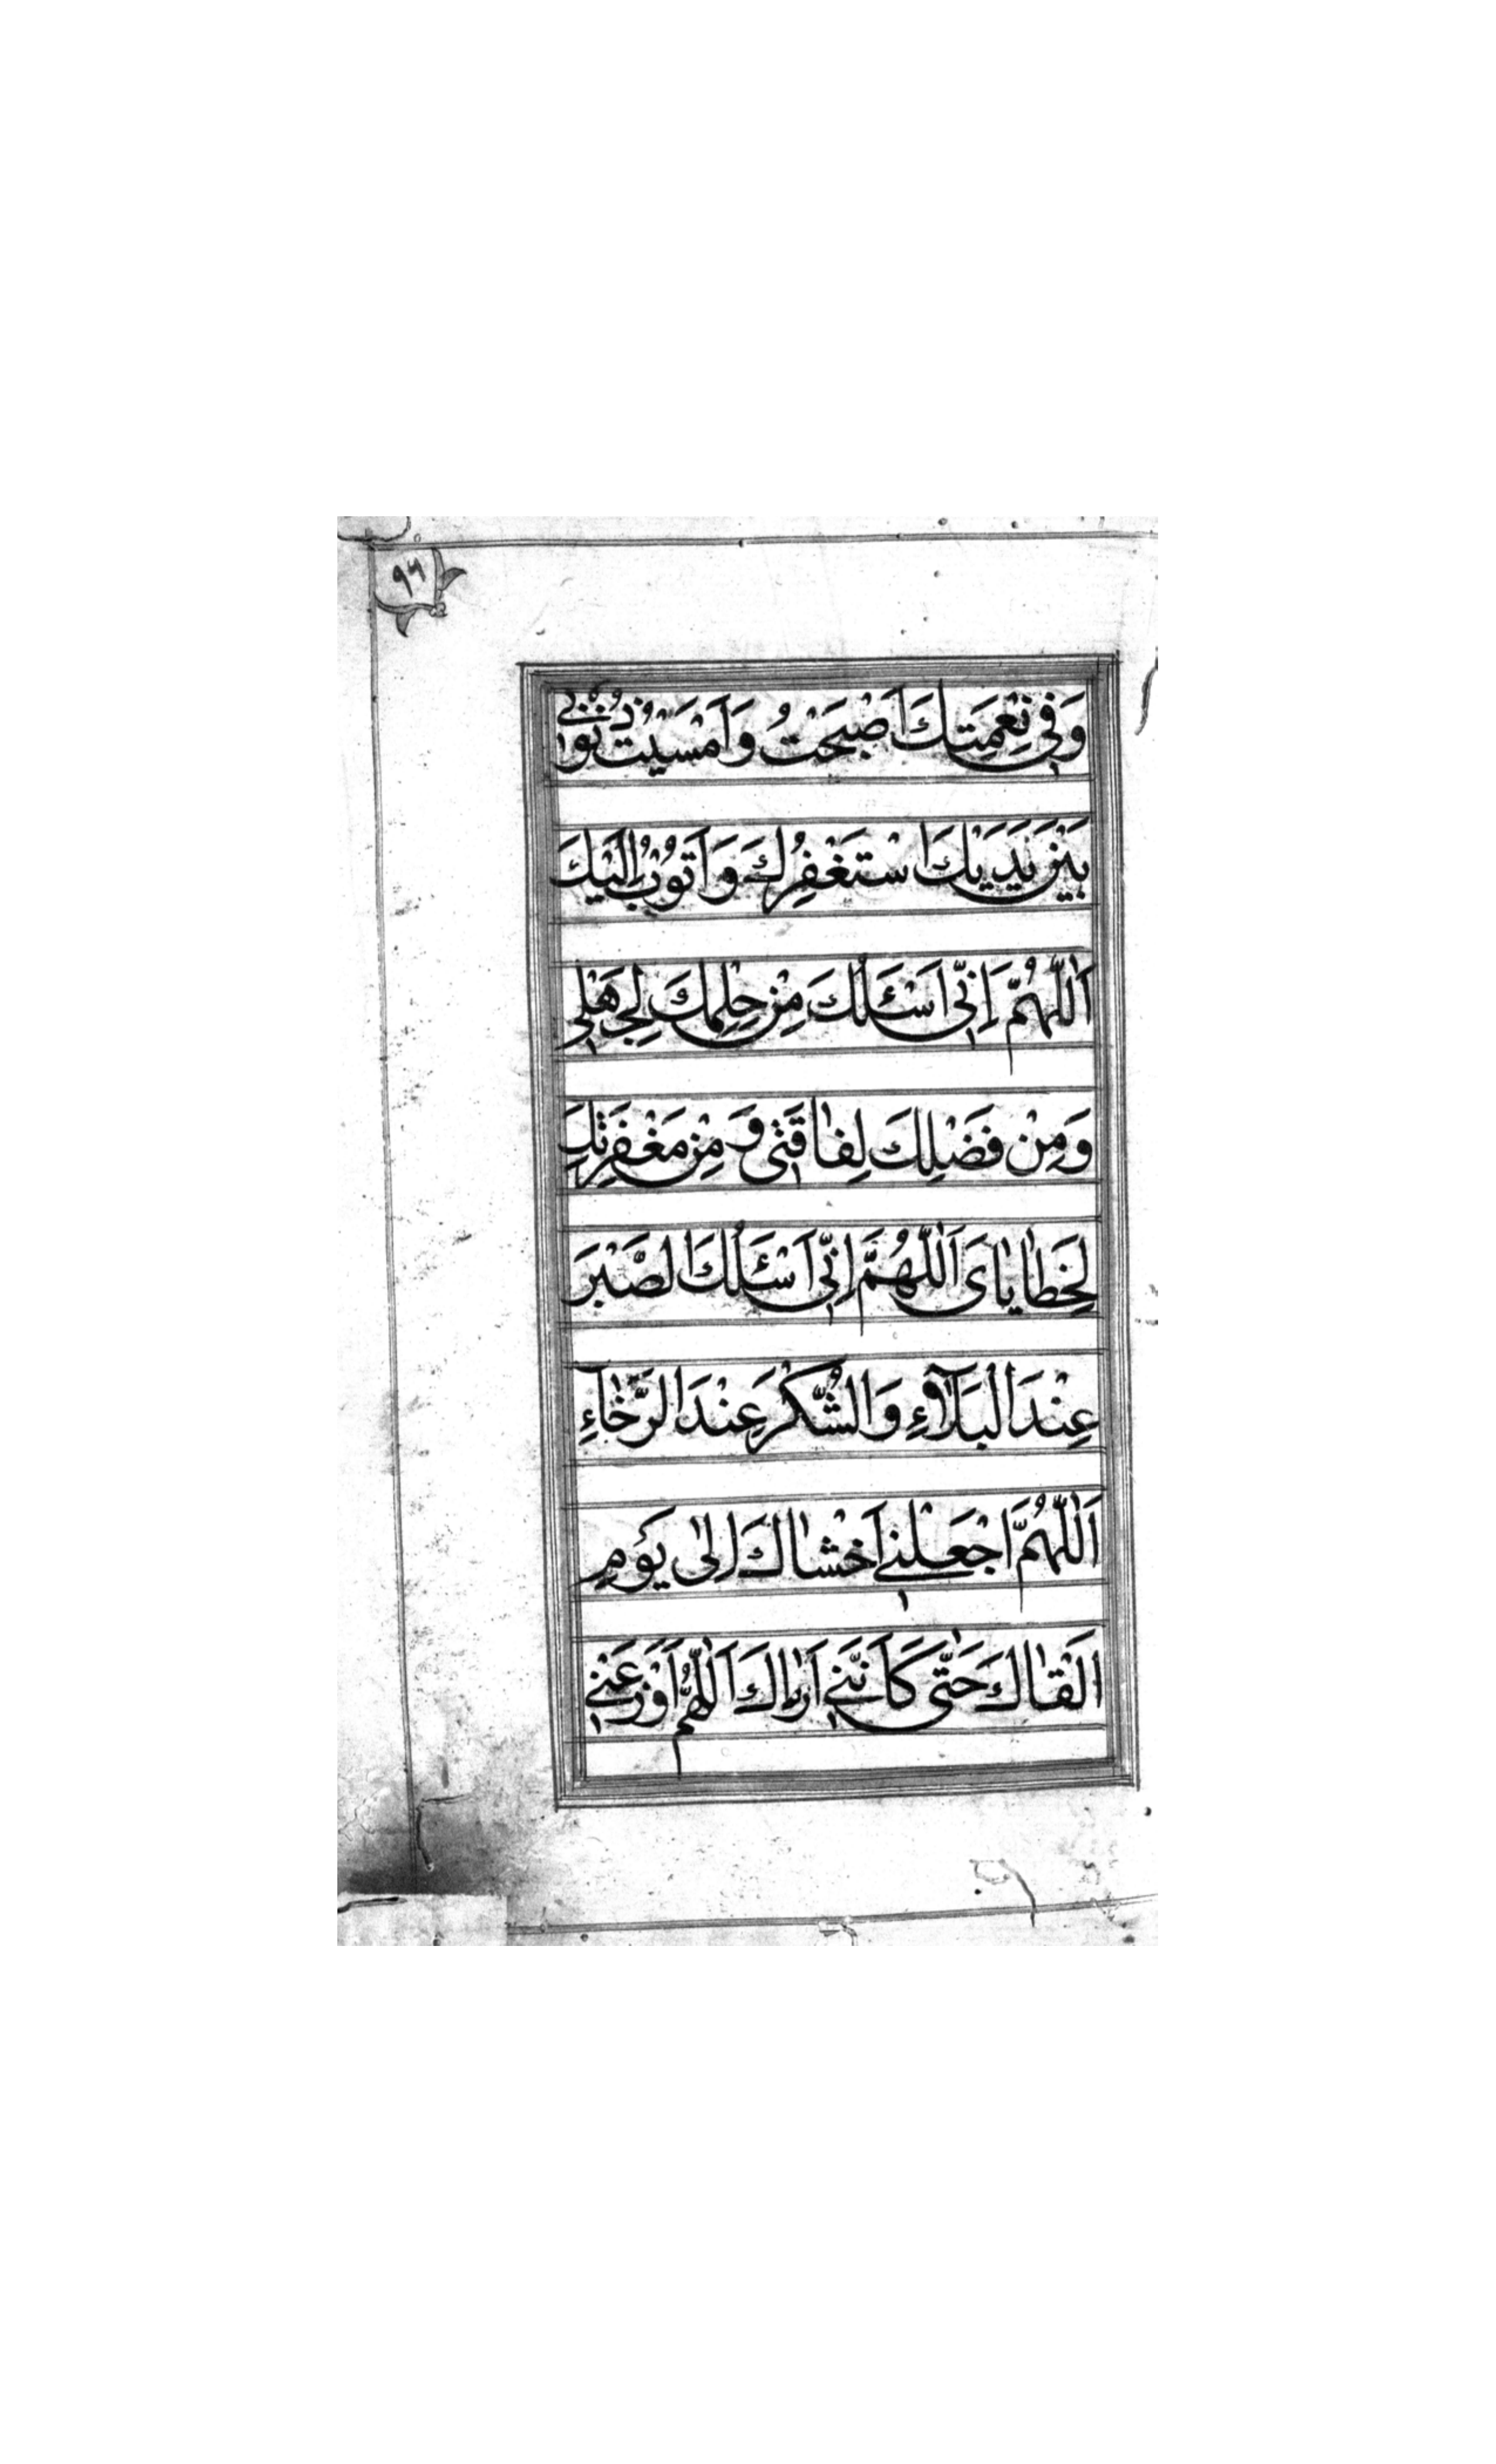 ٩٦
وَفِي نِعْمَتِكَ اَصْبَحْتُ وَاَمْسَيْتُ ذُنُوبِي
بَيْنَ يَدَيْكَ اَسْتَغْفِرُكَ وَاَتُوبُ اِلَيْكَ
اَللّٰهُمَّ اِنِّي اَسْئَلُكَ مِنْ حِلْمِكَ لِجَهْلِي
وَمِنْ فَضْلِكَ لِفاقَتِي وَمِنْ مَغْفِرَتِكَ
لِخَطايايَ اَللّٰهُمَّ اِنِّي اَسْئَلُكَ الصَّبْرَ
عِنْدَ الْبَلَآءِ وَالشُّكْرَ عِنْدَ الرَّخآءِ
اَللّٰهُمَّ اجْعَلْنِي اَخْشاكَ اِلىٰ يَوْمِ
اَلْقاكَ حَتّٰى كَاَنَّنِي اَراكَ اَللّٰهُمَّ اَوْزِعْنِي